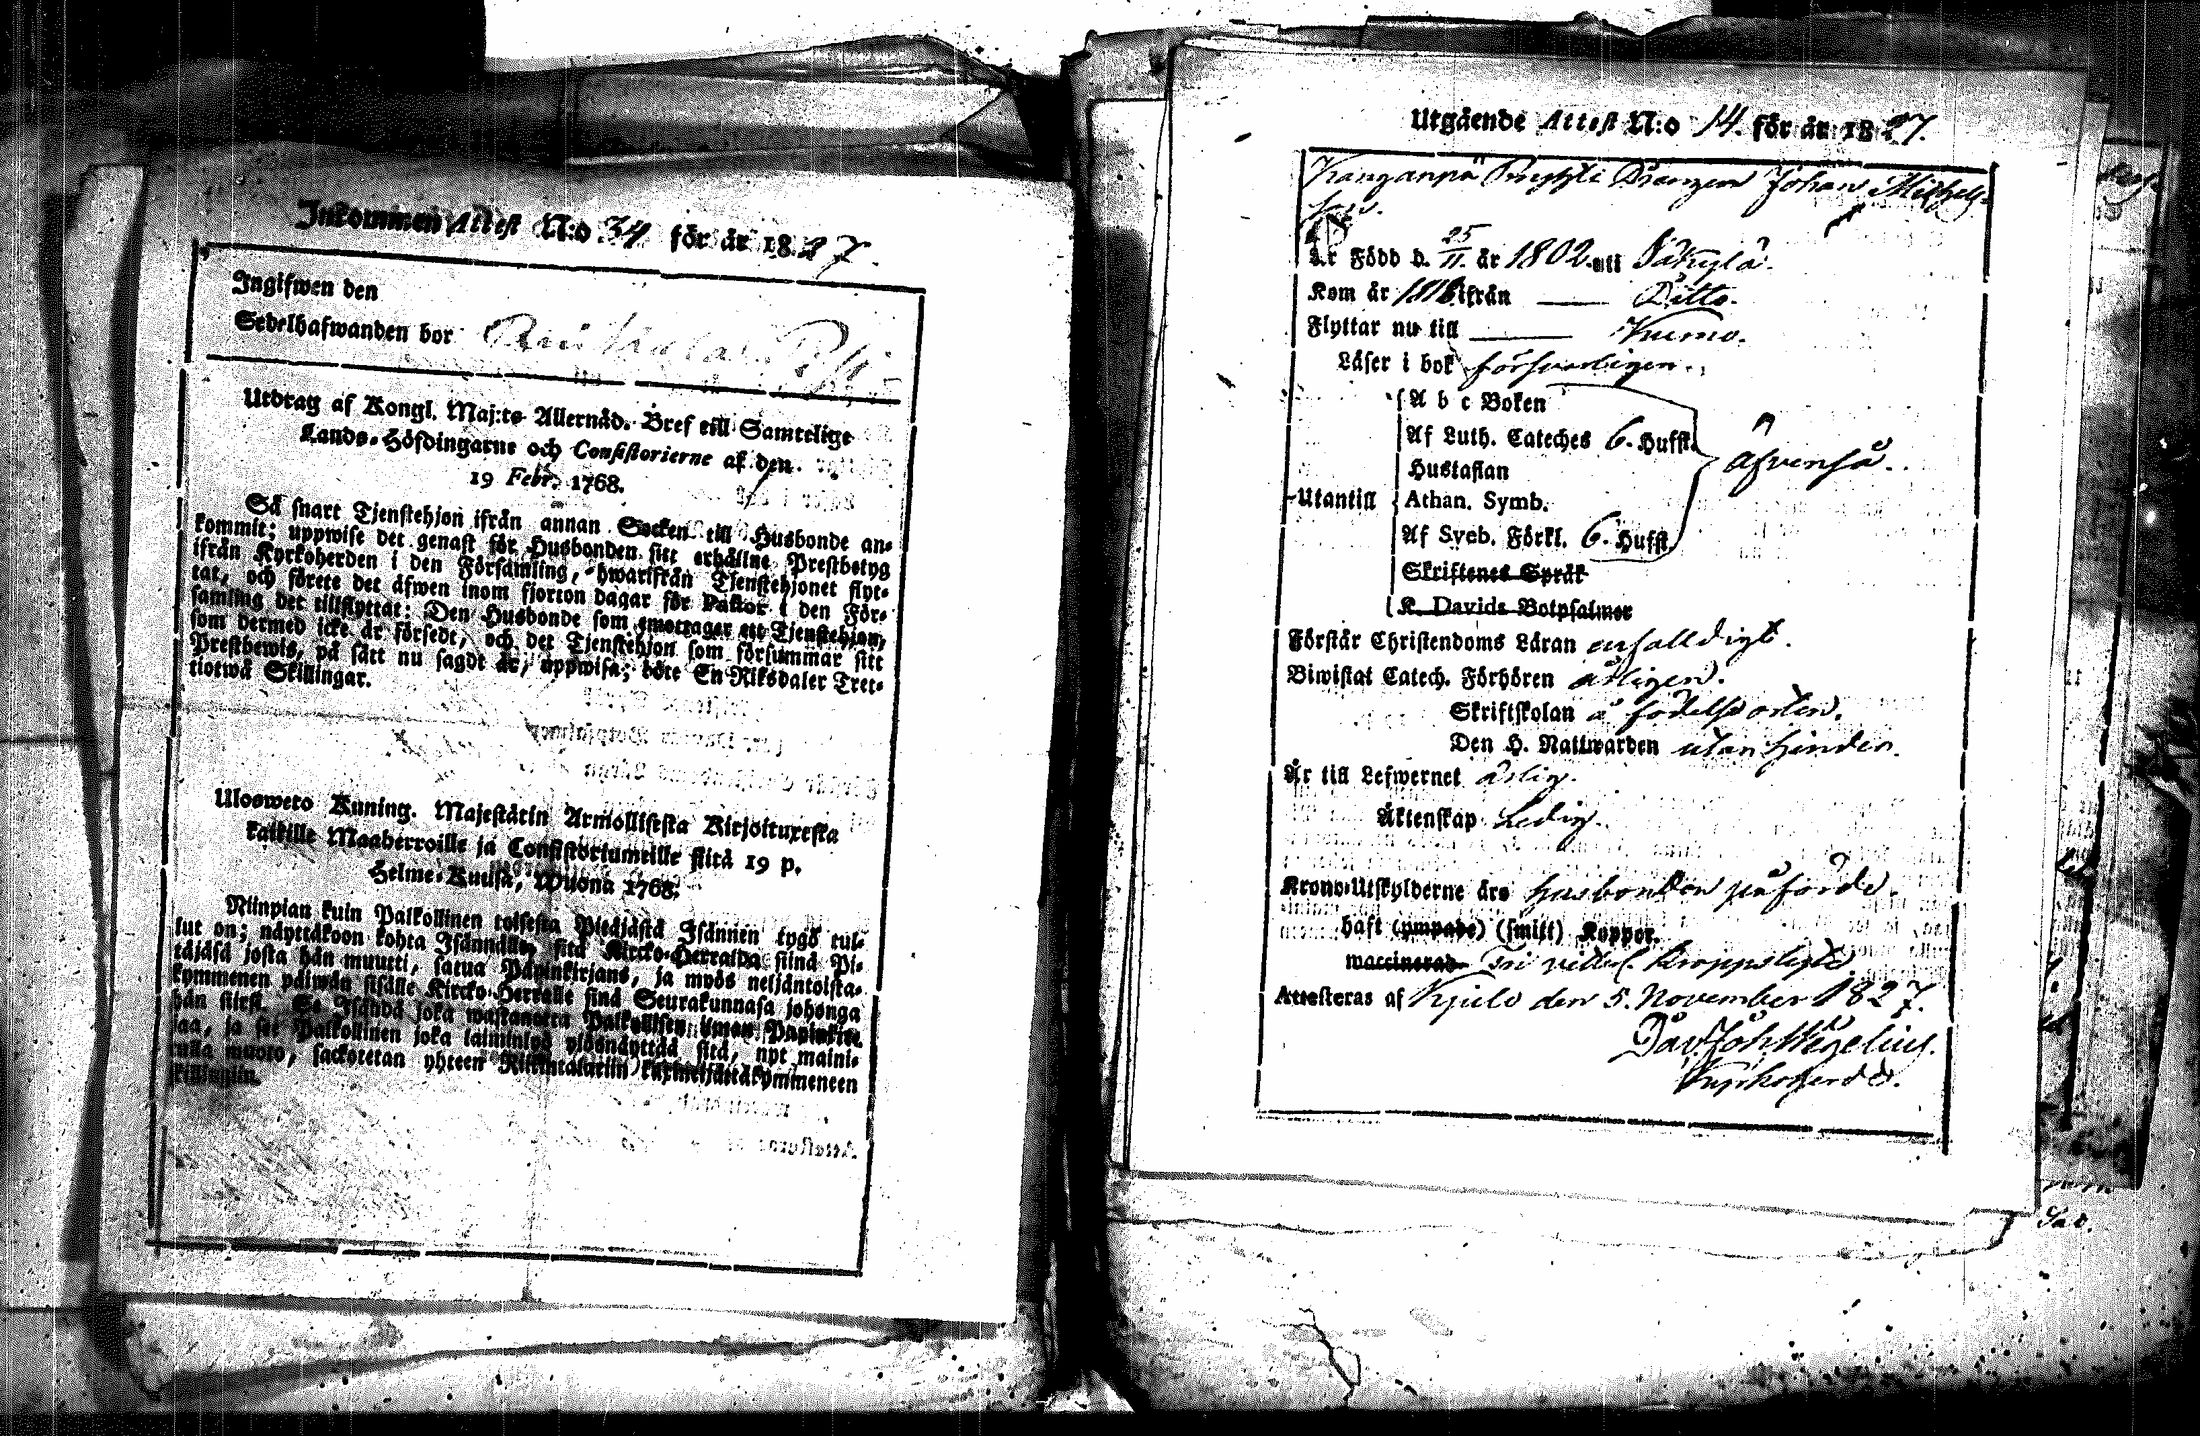 Inkommen Attest N:o 34 för år 1827.
Ingifwen den
Sedelhafwanden bor
Utdrag af Kongl. Maj:ts Allernåd. Bref till Samtelige
Lands-Höfdingarne och Consistorierne af den
19 Febr. 1768.
Så snart Tjenstehjon ifrån annan Socken till Husbonde an-
kommit; uppwise det genast för Husbonden sitt erhållne Prestbetyg
ifrån Kyrkoherden i den Församling, hwarifrån Tjenstehjonet flyt-
tat, och förete det äfwen inom fjorton dagar för Pastor i den För-
samling det tillflyttat: Den Husbonde som emottager ett Tjenstehjon,
som dermed icke är försedt, och det Tjenstehjon som försummar sitt
Prestbewis, på sätt nu sagdt är, uppwisa; böte En Riksdaler Tret-
tiotwå Skillingar.
Ulosweto Kuning. Majestätin Armollisesta Kirjoituxesta
kaikille Maaherroille ja Consistoriumeille siitä 19 p.
Helme-Kuusa, Wuona 1768.
Niinpian kuin Palkollinen toisesta Pitäjästä Isännen tygö tul-
lut on; näyttäkoon kohta Isännälle, sitä Kircko-Herralda siinä Pi-
täjäsä josta hän muutti, saatua Papinkirjans, ja myös neljäntoista-
kymmenen päiwän sisälle Kircko-Herralle siinä Seurakunnasa johonga
hän siirsi. Se Isändä joka wastanotta Palkollisen ilman Papinkir-
jaa, ja se Palkollinen joka laiminlyö ylösnäyttää sitä, nyt maini-
tulla muoto, sackotetan yhteen Rikintalariin kaxineljättäkymmeneen
skillingiin.
Utgående Attest N:o 14. för år 1827.
Kanganpä Drengen Johan Michels-
son.
Är Född d. 25/11. år 1802. uti Säkylä.
Kom år 1816 ifrån —— Ditto.
Flyttar nu till —— Kumo.
Läser i bok försvarligen.
A b c Boken
Af Luth. Cateches 6. Hufst.
Hustaflan
äfvenså.
Utantill Athan. Symb.
Af Sveb. Förkl. 6. Hufst.
Skriftenes Språk
K. Davids Botpsalmer
Förstår Christendoms Läran enfalldigt.
Biwistat Catech. Förhören årligen.
Skriftskolan å födelse orten.
Den H. Nattwarden utan hinder.
Är till Lefwernet ärlig.
Äktenskap Ledig.
Krono-Utskylderne äro husbonden påförde.
haft (ympade) (smitt) Koppor.
waccinerad
Attesteras af Kjulo den 5. November 1827.
Dav. Joh. Hägelius.
Kyrkoherde.